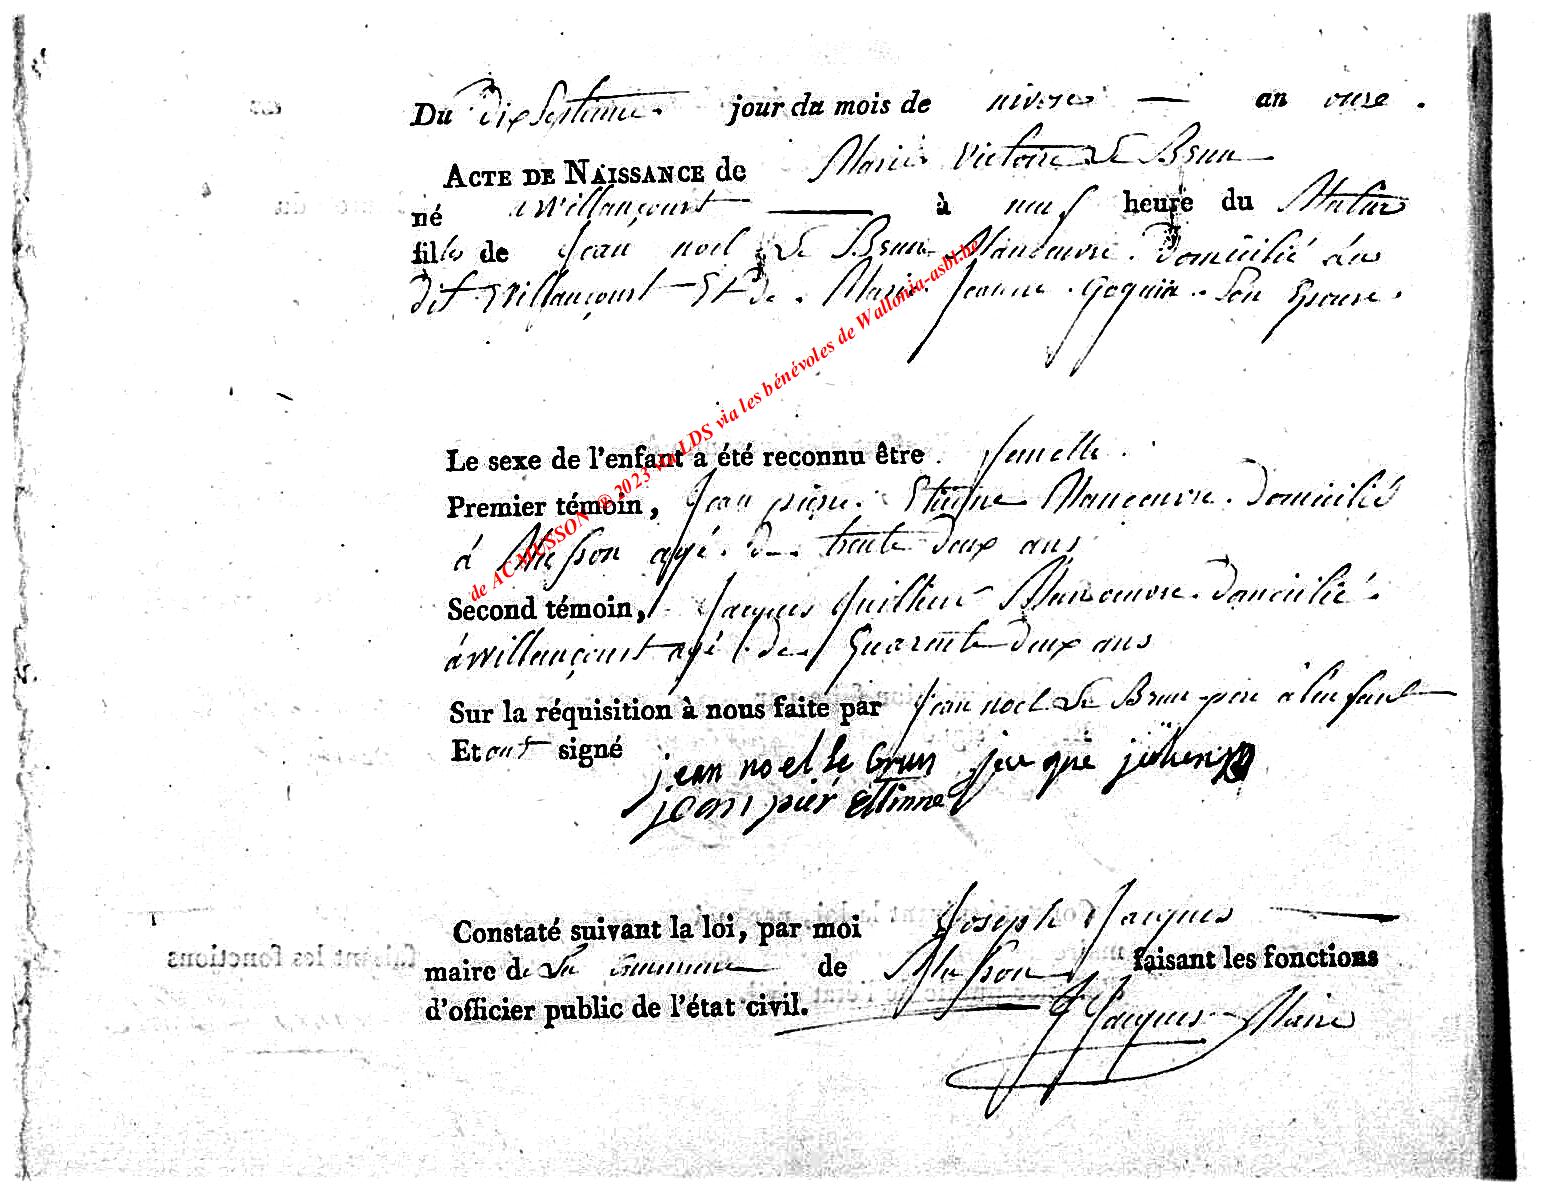 Du Dix Septieme jour du mois de nivose — an onse.
ACTE DE NAISSANCE de Marie Victoire Le Brun
né a Willancourt — à neuf heure du Matin
fille de Jean noel Le Brun Manoeuvre Domicilié au
dit Willancourt Et de Marie Jeanne Goquia Son Epouse.
Le sexe de l'enfant a été reconnu être femelle.
Premier témoin, Jean pierre Etienne Manoeuvre Domicilié
á Musson agé de trente Deux ans
Second témoin, Jacques Juillien Manoeuvre Domicilié
á Willancourt agé de Quarente deux ans
Sur la réquisition à nous faite par Jean noel Le Brun pere a l'enfant
Et ont signé
jean noel le brun jacque julien
jean pier Etinne
Constaté suivant la loi, par moi Joseph Jacques —
maire de La Commune de Musson faisant les fonctions
d'officier public de l'état civil. J Jacques Maire
de AC MUSSON ® 2023 via LDS via les bénévoles de Wallonia-asbl.be